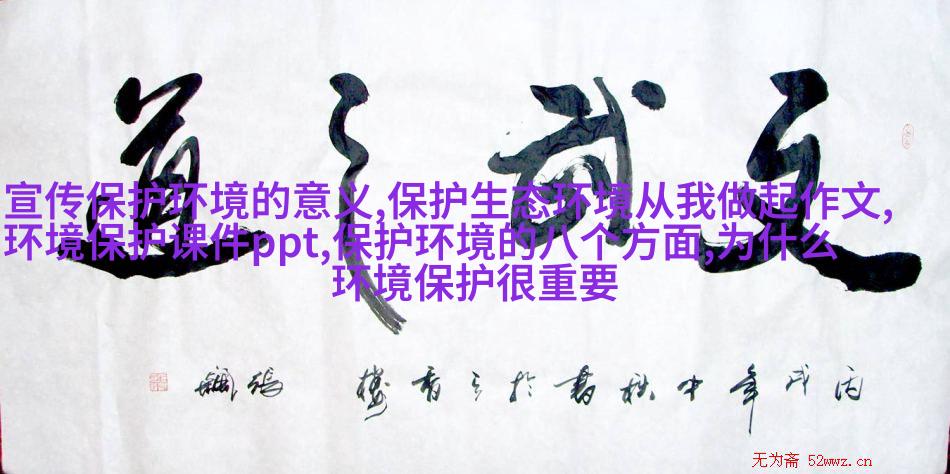 宣传保护环境的意义,保护生态环境从我做起作文,
环境保护课件ppt,保护环境的八个方面,为什么
环境保护很重要
武之道
丙戌年中秋書於香樓
无为斋 52wwz.cn